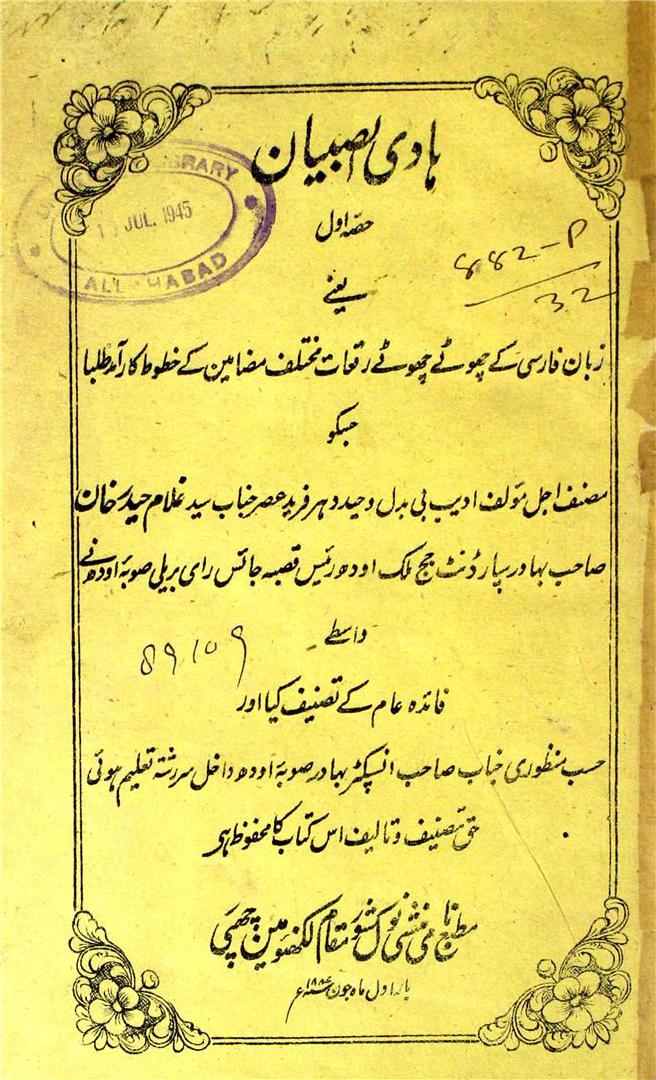 ہادی الصبیان
LIBRARY
JUL. 1945
ALLAHABAD
حصہ اول
882-P
32
یعنے
زبان فارسی کے چھوٹے چھوٹے رقعات مختلف مضامین کے خطوط کارآمد طلبا
جسکو
مصنف اجل مؤلف ادیب بی بدل وحید دہر فرید عصر جناب سید غلام حیدر خان
صاحب بہادر سپارڈنٹ جج ملک اودھ رئیس قصبہ جائس رای بریلی صوبہ اودھ نے
واسطے
89109
فائدہ عام کے تصنیف کیا اور
حسب منظوری جناب صاحب انسپکٹر بہادر صوبہ اودھ داخل سررشتہ تعلیم ہوئی
حق تصنیف و تالیف اس کتاب کا محفوظ ہی
مطبع نامی منشی نولکشور مقام لکھنو مین چھپی
بار اول ماہ جون